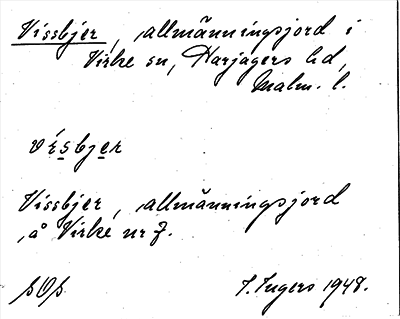 Vissbjer, allmänningsjord i
Virke sn, Harjagers hd,
Malm. l.
vísbjer
Vissbjer, allmänningsjord
å Virke nr 7.
I. Ingers 1948.